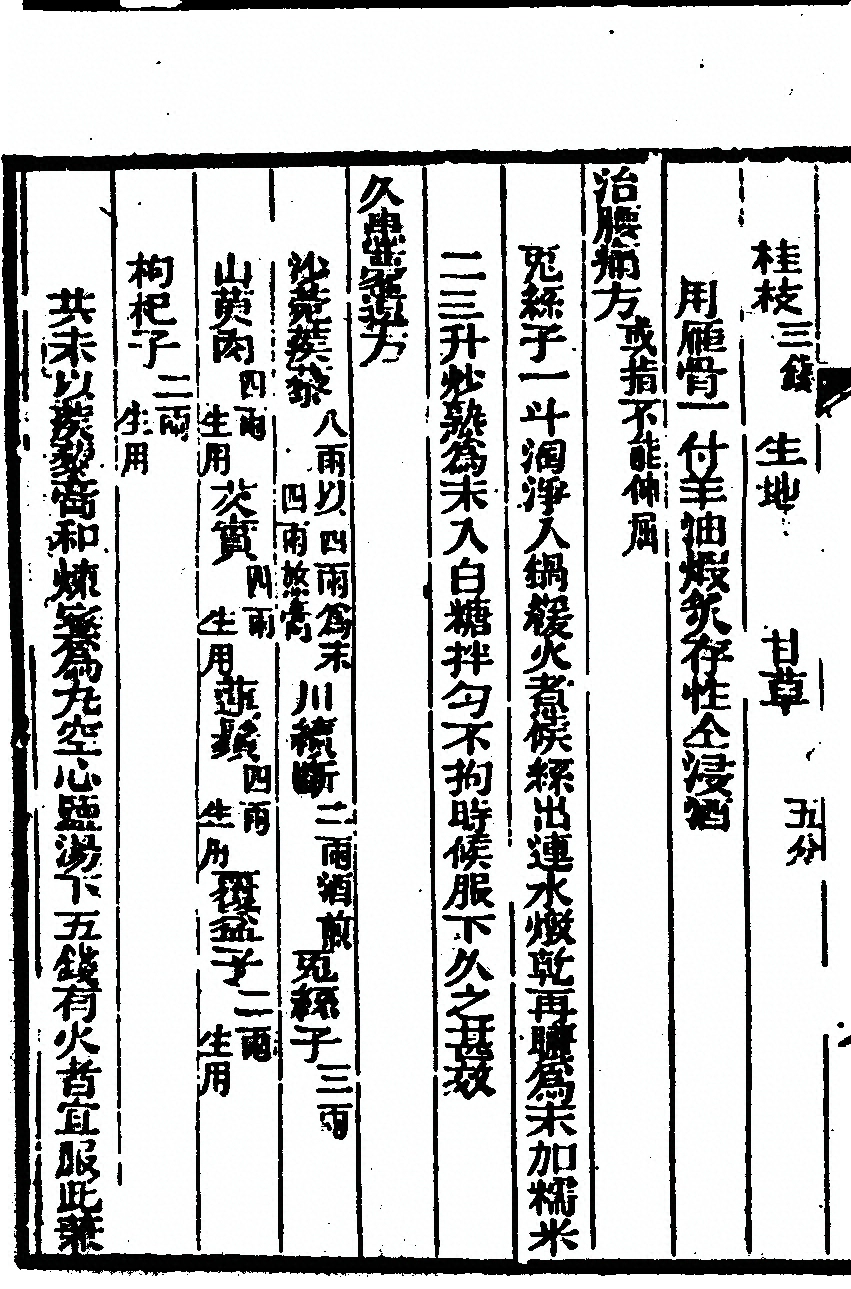 桂枝三錢　生地　甘草　五分
用雁骨一付羊油煆炙存性仝浸酒
治腰痛方或指不能伸屈
兎絲子一斗淘淨入鍋緩火煮候絲出連水燉乾再曬為末加糯米
二三升炒熟為末入白糖拌勻不拘時候服下久之甚效
久患夢遺方
沙菀蒺藜八兩以四兩為末四兩熬膏　川續斷二兩酒煎　兎絲子三兩
山萸肉四兩生用　芡實四兩生用　蓮鬚四兩生用　覆盆子二兩生用
枸杞子二兩生用
共末以蒺藜膏和煉蜜為丸空心鹽湯下五錢有火者宜服此兼